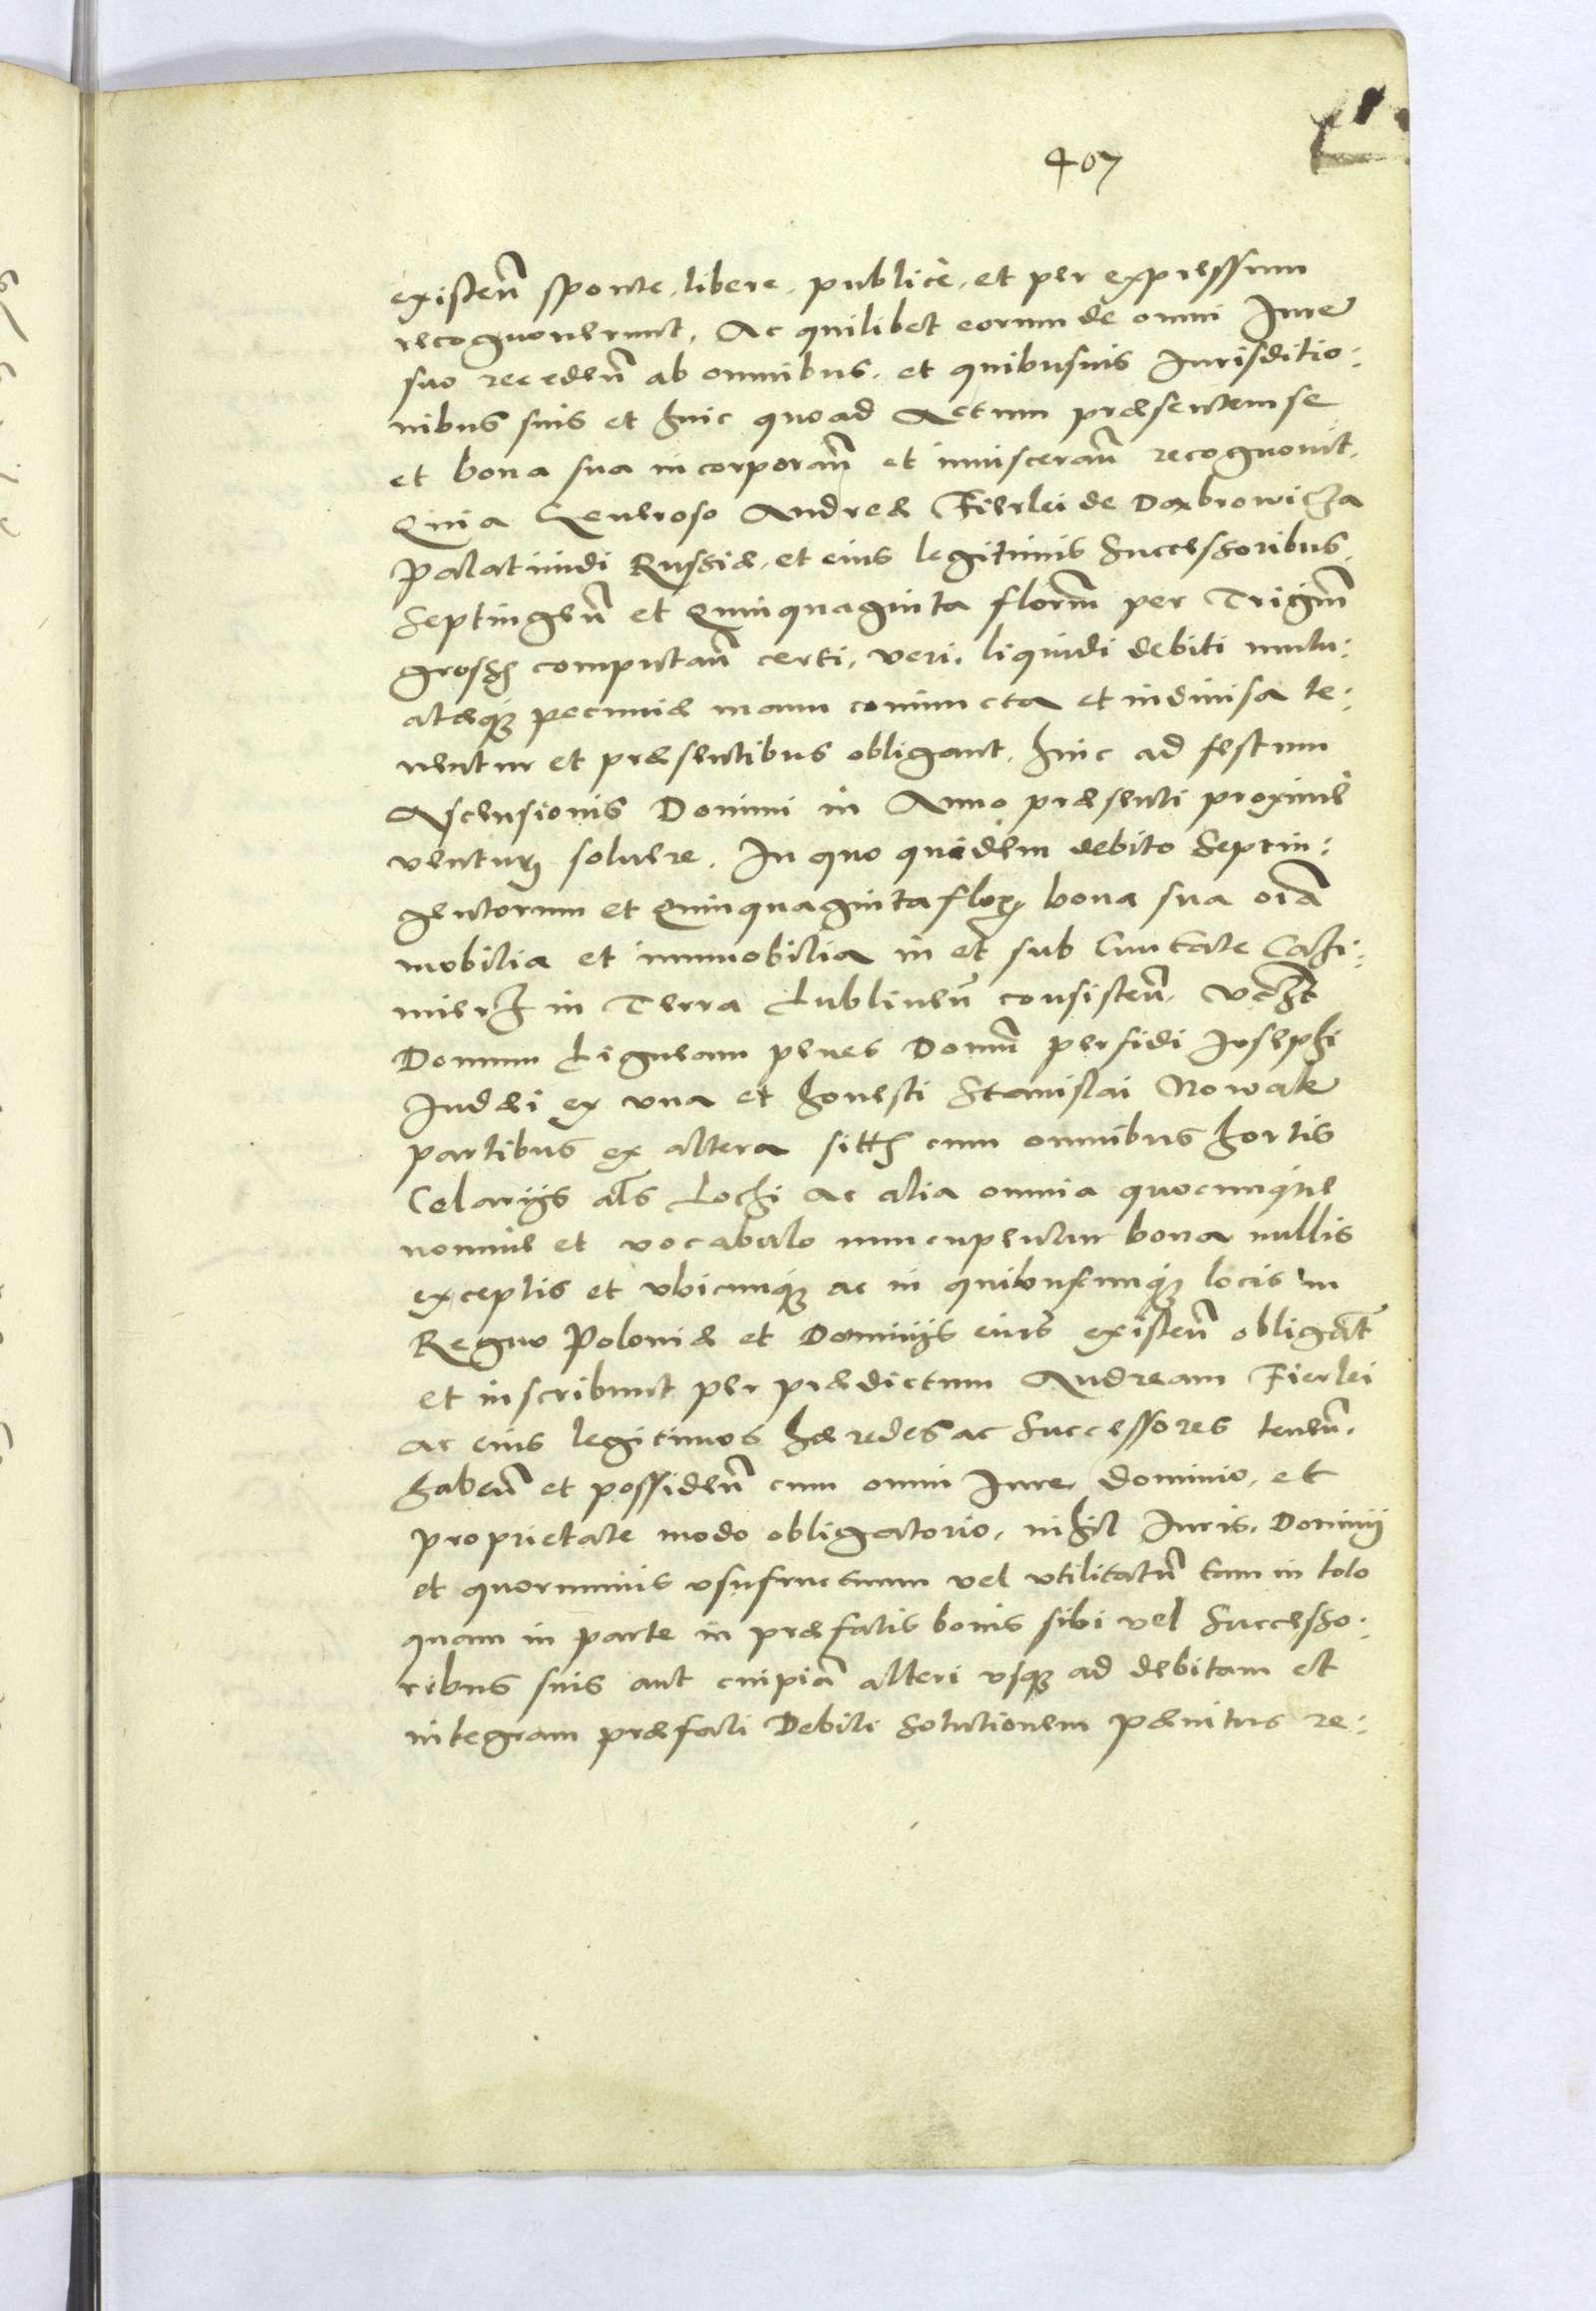 407
existen̄ sponte, libere, publicè, et per expressum
recognoverunt, Ac quilibet eorum de omni Iure
suo receden̄ ab omnibus, et quibusvis Iurisditio:
nibus suis et huic quoad Actum præsentem se
et bona sua incorporan̄ et invisceran̄ recognovit,
Quia Generoso Andreæ Fierlei de Dąbrowicza
Palatinidi Russiæ, et eius legitimis Successoribus,
Septingen̄ et Quinquaginta floren̄ per Trigin̄
gross computan̄ certi, veri, liquidi debiti mutu:
atæq; pecuniæ manu coniuncta et indivisa te:
nentur et præsentibus obligant, huic ad festum
Ascensionis Domini in Anno præsenti proximè
ventur solvere. In quo quidem debito Septin:
gentorum et Quinquaginta flor bona sua oīa
mobilia et immobilia in et sub Civitate Cazi:
mierz in Terra Lublinen̄ consisten̄, vczt
Domum Ligneam penes Domū perfidi Iosephi
Iudæi ex una et honesti Stanislai Nowak
partibus ex altera sitt cum omnibus hortis
Celarijs als Lochi ac alia omnia quocunque
nomine et vocabulo nuncupentur bona nullis
exceptis et ubicunq; ac in quibuscunq; locis in
Regno Poloniæ et Dominijs eius existen̄ obligāt
et inscribunt per prædictum Andream Fierlei
ac eius legitimos hæredes ac Successores tenen̄,
haben̄ et possiden̄ cum omni Iure, dominio, et
proprietate modo obligatorio, nihil Iuris, Dominij
et quorumvis usufructuum vel utilitatū tam in toto
quam in parte in præfatis bonis sibi vel Successo:
ribus suis aut cuipiā alteri usq; ad debitam et
integram præfati Debiti Solutionem pænitus re: